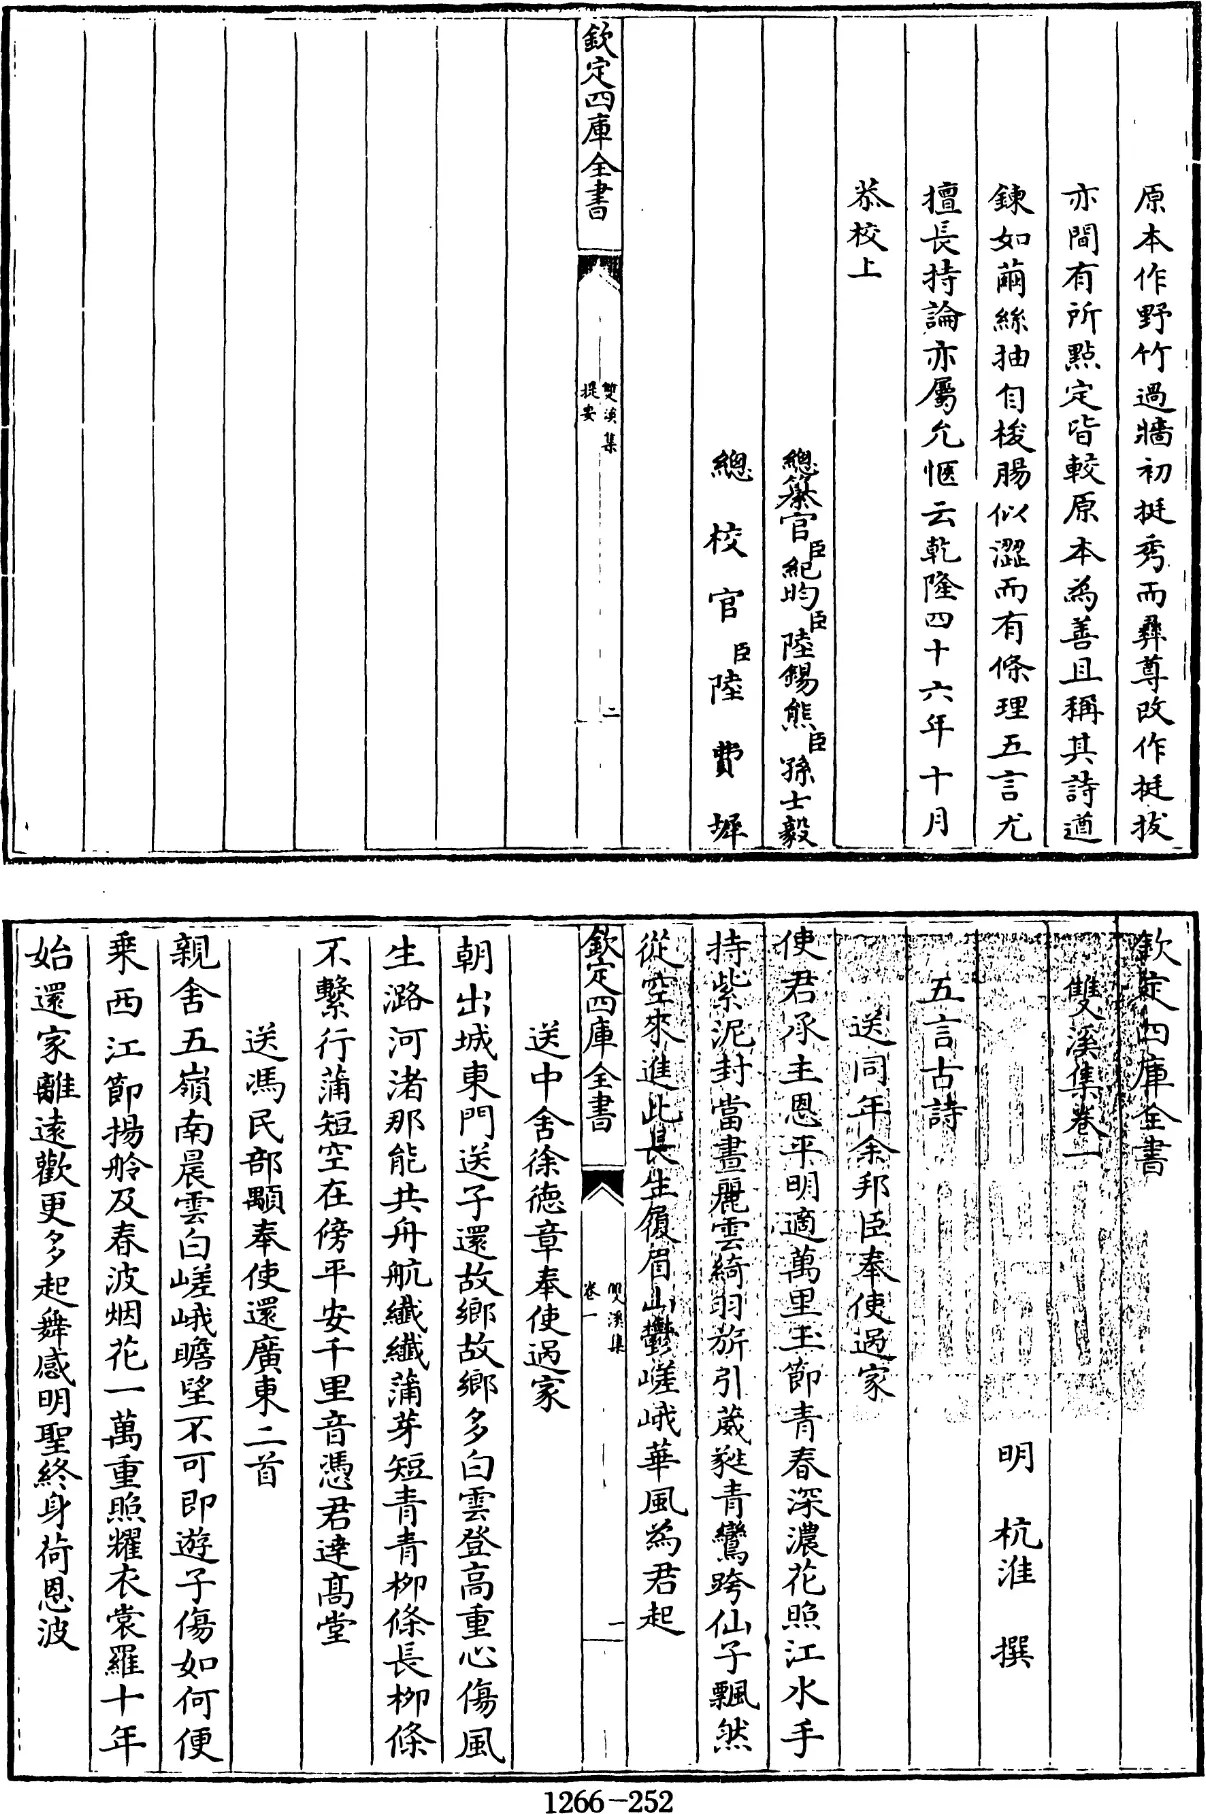 原本作野竹過牆初挺秀而彝尊改作挺拔
亦間有所點定皆較原本為善且稱其詩遒
鍊如繭絲抽自梭腸似澀而有條理五言尤
擅長持論亦屬允愜云乾隆四十六年十月
恭校上
總纂官臣紀昀臣陸錫熊臣孫士毅
總校官臣陸費墀
欽定四庫全書
雙溪集
提要
二
欽定四庫全書
雙溪集卷一
明 杭淮 撰
五言古詩
送同年余邦臣奉使過家
使君承主恩平明適萬里玉節青春深濃花照江水手
持紫泥封當晝麗雲綺羽旂引葳蕤青鸞跨仙子飄然
從空來進此長生履眉山鬱嵯峨華風為君起
欽定四庫全書
雙溪集
卷一
一
送中舍徐德章奉使過家
朝出城東門送子還故鄉故鄉多白雲登高重心傷風
生潞河渚那能共舟航纖纖蒲芽短青青柳條長柳條
不繫行蒲短空在傍平安千里音憑君達高堂
送馮民部顒奉使還廣東二首
親舍五嶺南晨雲白嵯峨瞻望不可即遊子傷如何便
乘西江節揚舲及春波烟花一萬重照耀衣裳羅十年
始還家離遠歡更多起舞感明聖終身荷恩波
1266-252